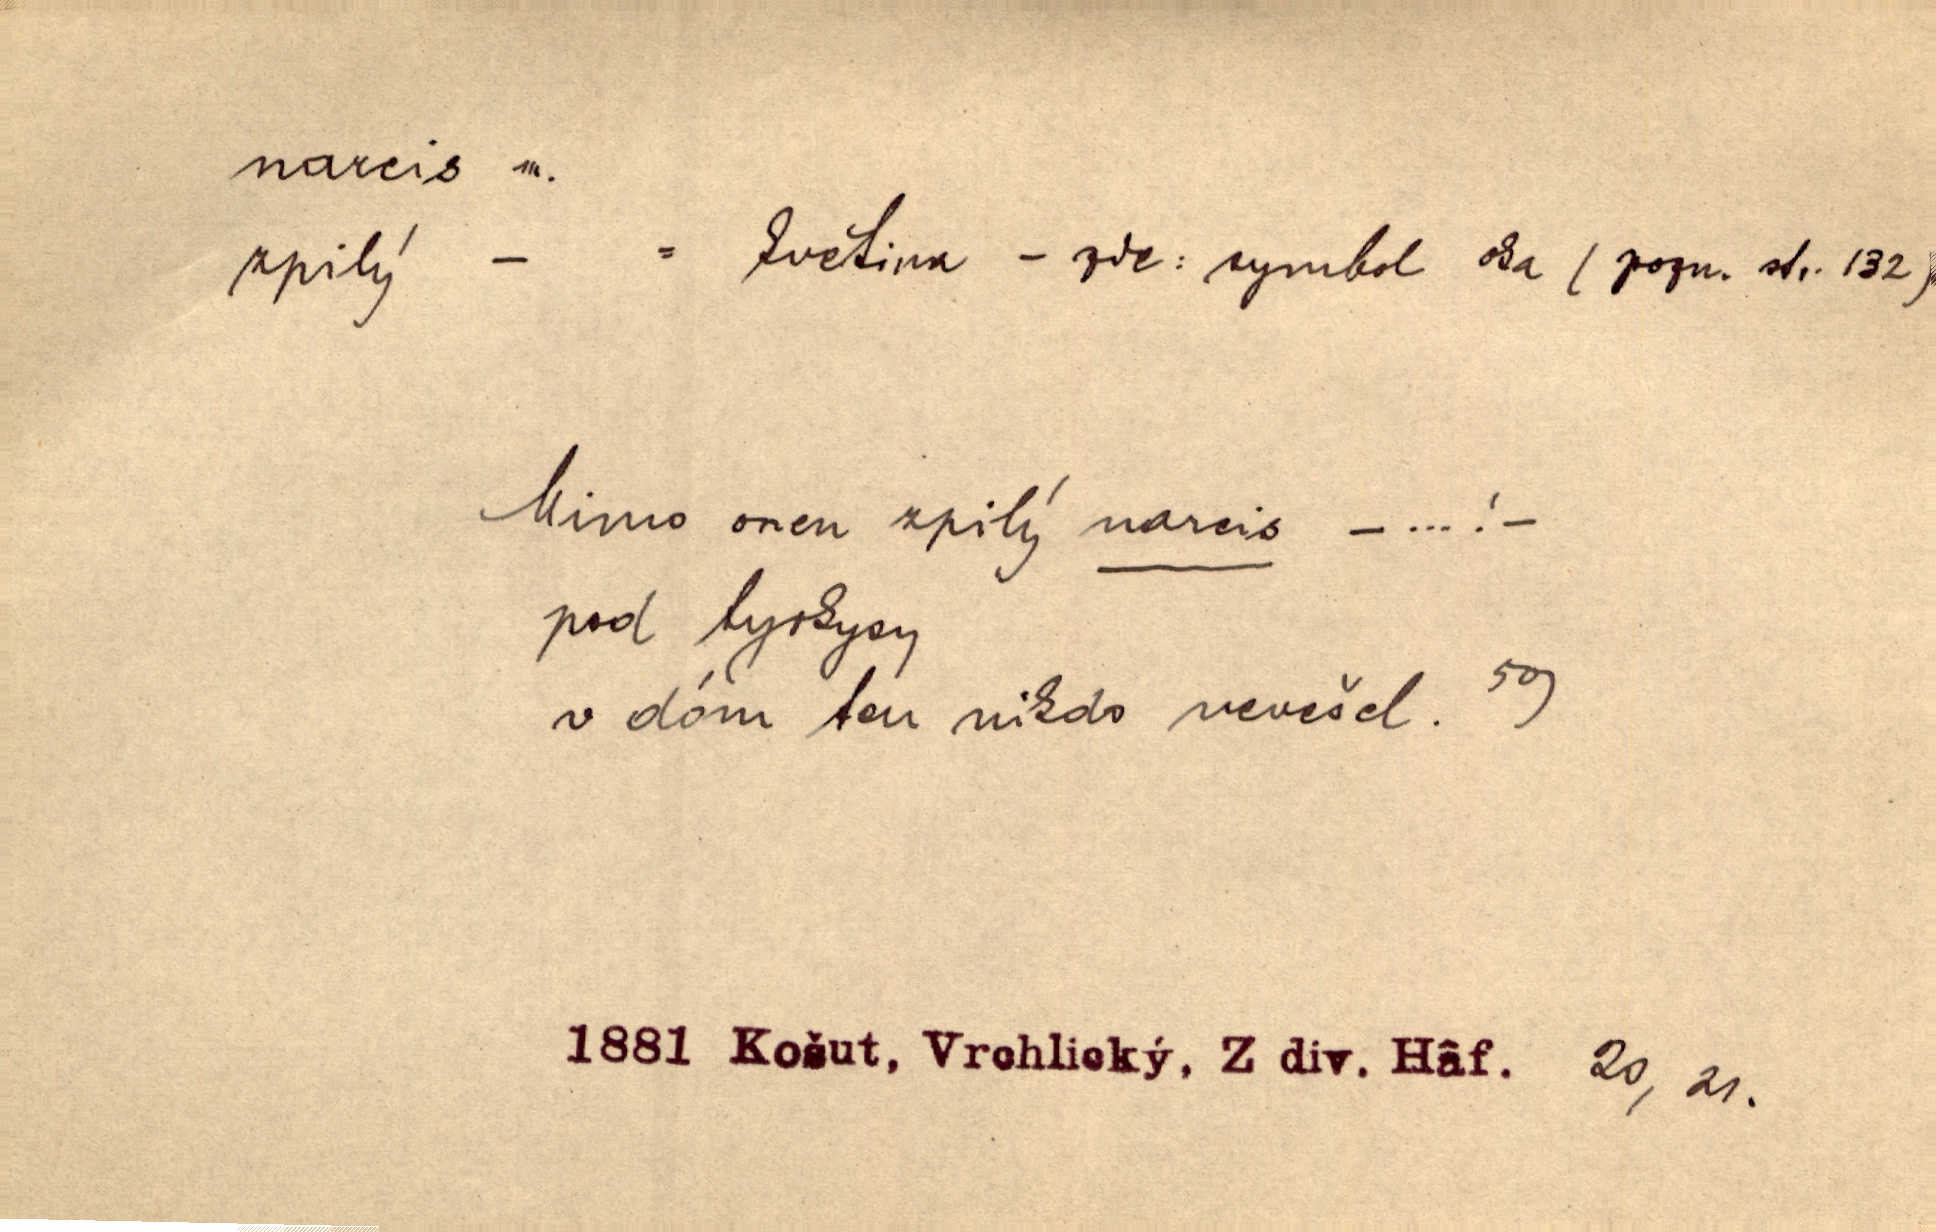 narcis m.
zpilý – = květina – zde: symbol oka (pozn. str. 132)
Mimo onen zpilý narcis – ...! –
pod tyrkysy
v dóm ten nikdo nevešel. 50)
1881 Košut, Vrchlický, Z div. Hâf. 20, 21.